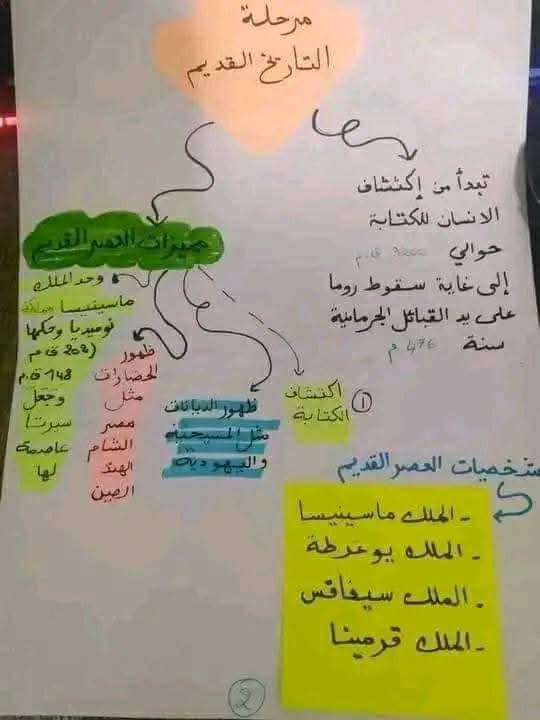 مرحلة
التاريخ القديم
تبدأ من إكتشاف
الانسان للكتابة
حوالي 3200 ق.م
إلى غاية سقوط روما
على يد القبائل الجرمانية
سنة 476 م
مميزات العصر القديم
① اكتشاف
الكتابة
ظهور الديانات
مثل المسيحية
واليهودية
ظهور
الحضارات
مثل
مصر
الشام
الهند
الصين
وحد الملك
ماسينيسا مملكة
نوميديا وحكمها
(203 ق م
148 ق.م
وجعل
سيرتا
عاصمة
لها
شخصيات العصر القديم
- الملك ماسينيسا
- الملك يوغرطة
- الملك سيفاقس
- الملك قرمينا
2